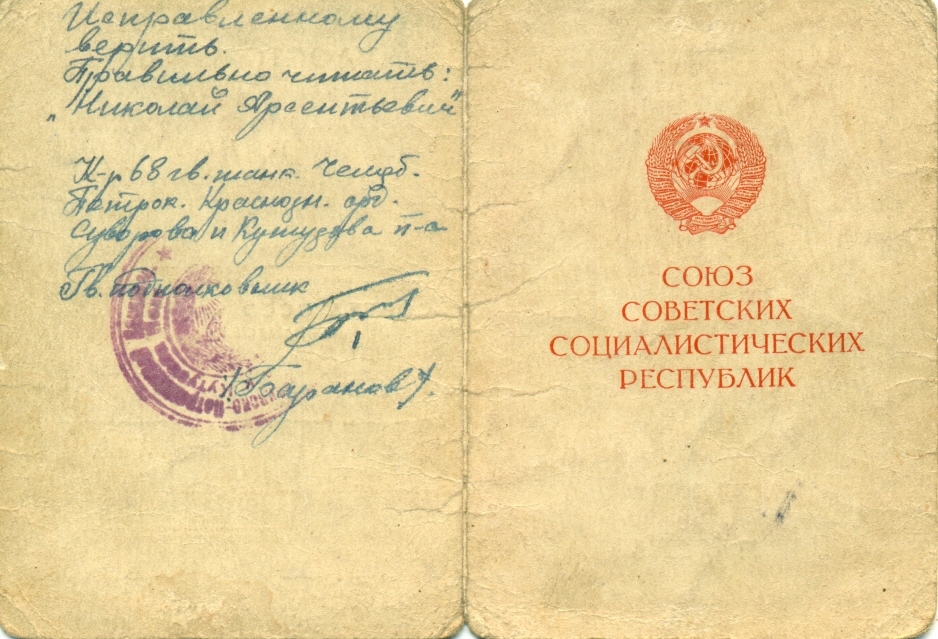 Исправленному
верить.
Правильно читать:
„Николай Арсентьевич"
К-р 68 гв. танк. Челяб.
Петрок. Краснозн. орд.
Суворова и Кутузова п-а
Гв. подполковник
/Баранов/.
СОЮЗ
СОВЕТСКИХ
СОЦИАЛИСТИЧЕСКИХ
РЕСПУБЛИК